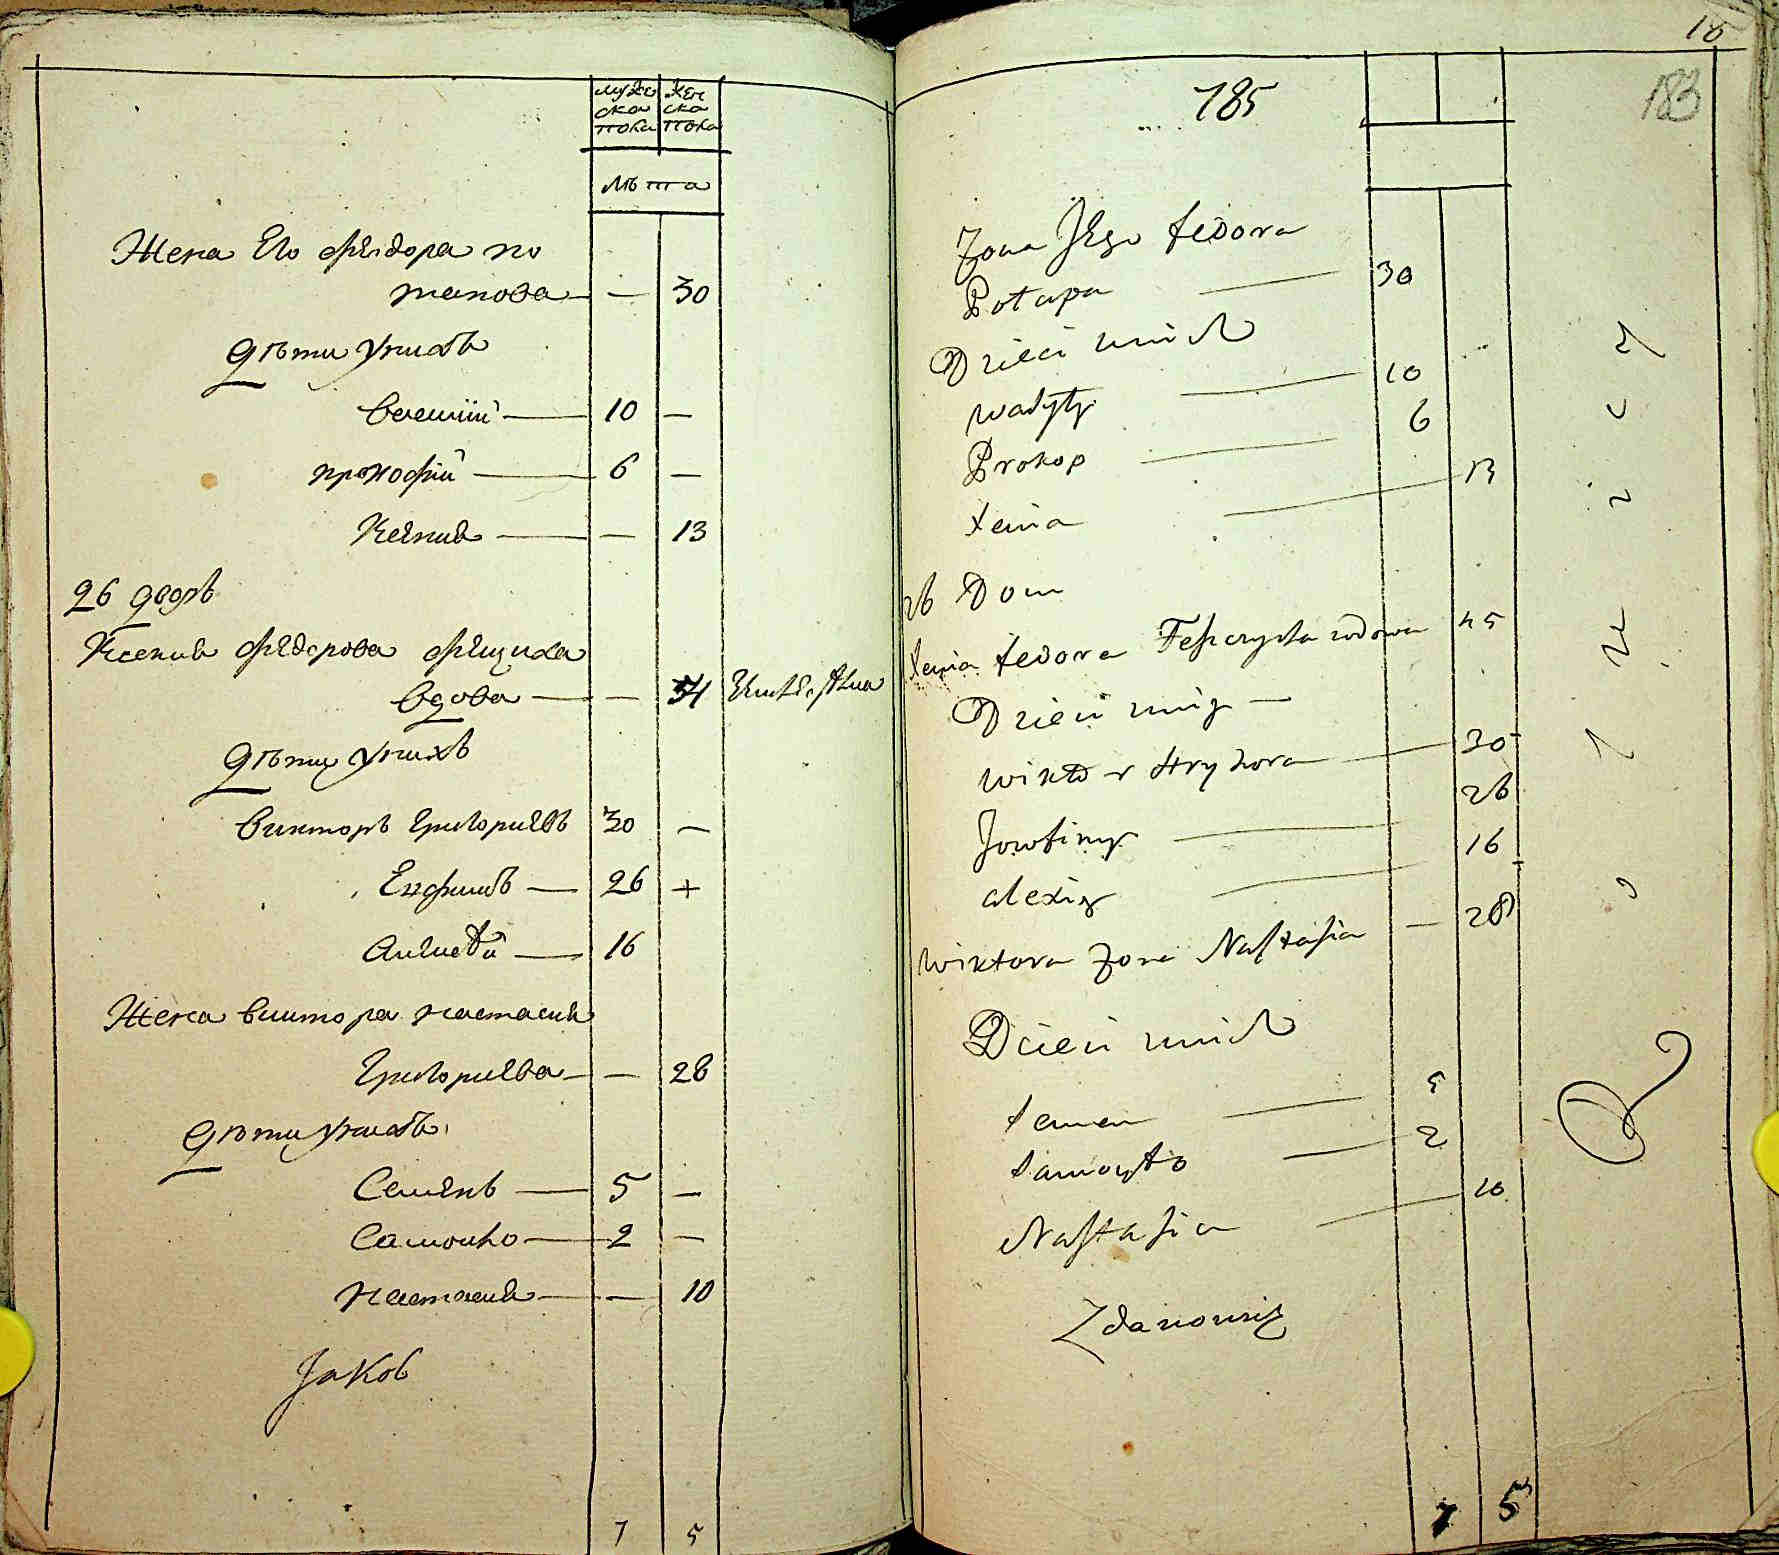 мужс ска пола
женска пола
лѣта
Жена Его Фіедора по
тапова — — 30
Дѣти у нихъ
10 —
прокофій — 6 —
Ксения — — 13
26 дворъ
Ксения Федорова
вдова — —
Дѣти у нихъ
Викторъ Григориевъ 30 —
26 +
Алексѣй — 16
Жена виктора настасия
Григориева — — 28
Дѣти у нихъ
Семенъ — 5 —
Самойло — 2 —
настасия — — 10
Jakob
7 5
185
183
Zona Jego fedora
Potapa — 30
Dzieci unich
10
Prokop — 6
xenia — 13
26 Dom
xenia fedora wdowa 45
Dzieci uniz —
wiktor Hryhora — 30
26
alexiy — 16
wiktora zona Nastasia — 28
Dzieci unich
semen — 5
samoylo — 2
Nastasia — 10
Zdanowicz
7 5